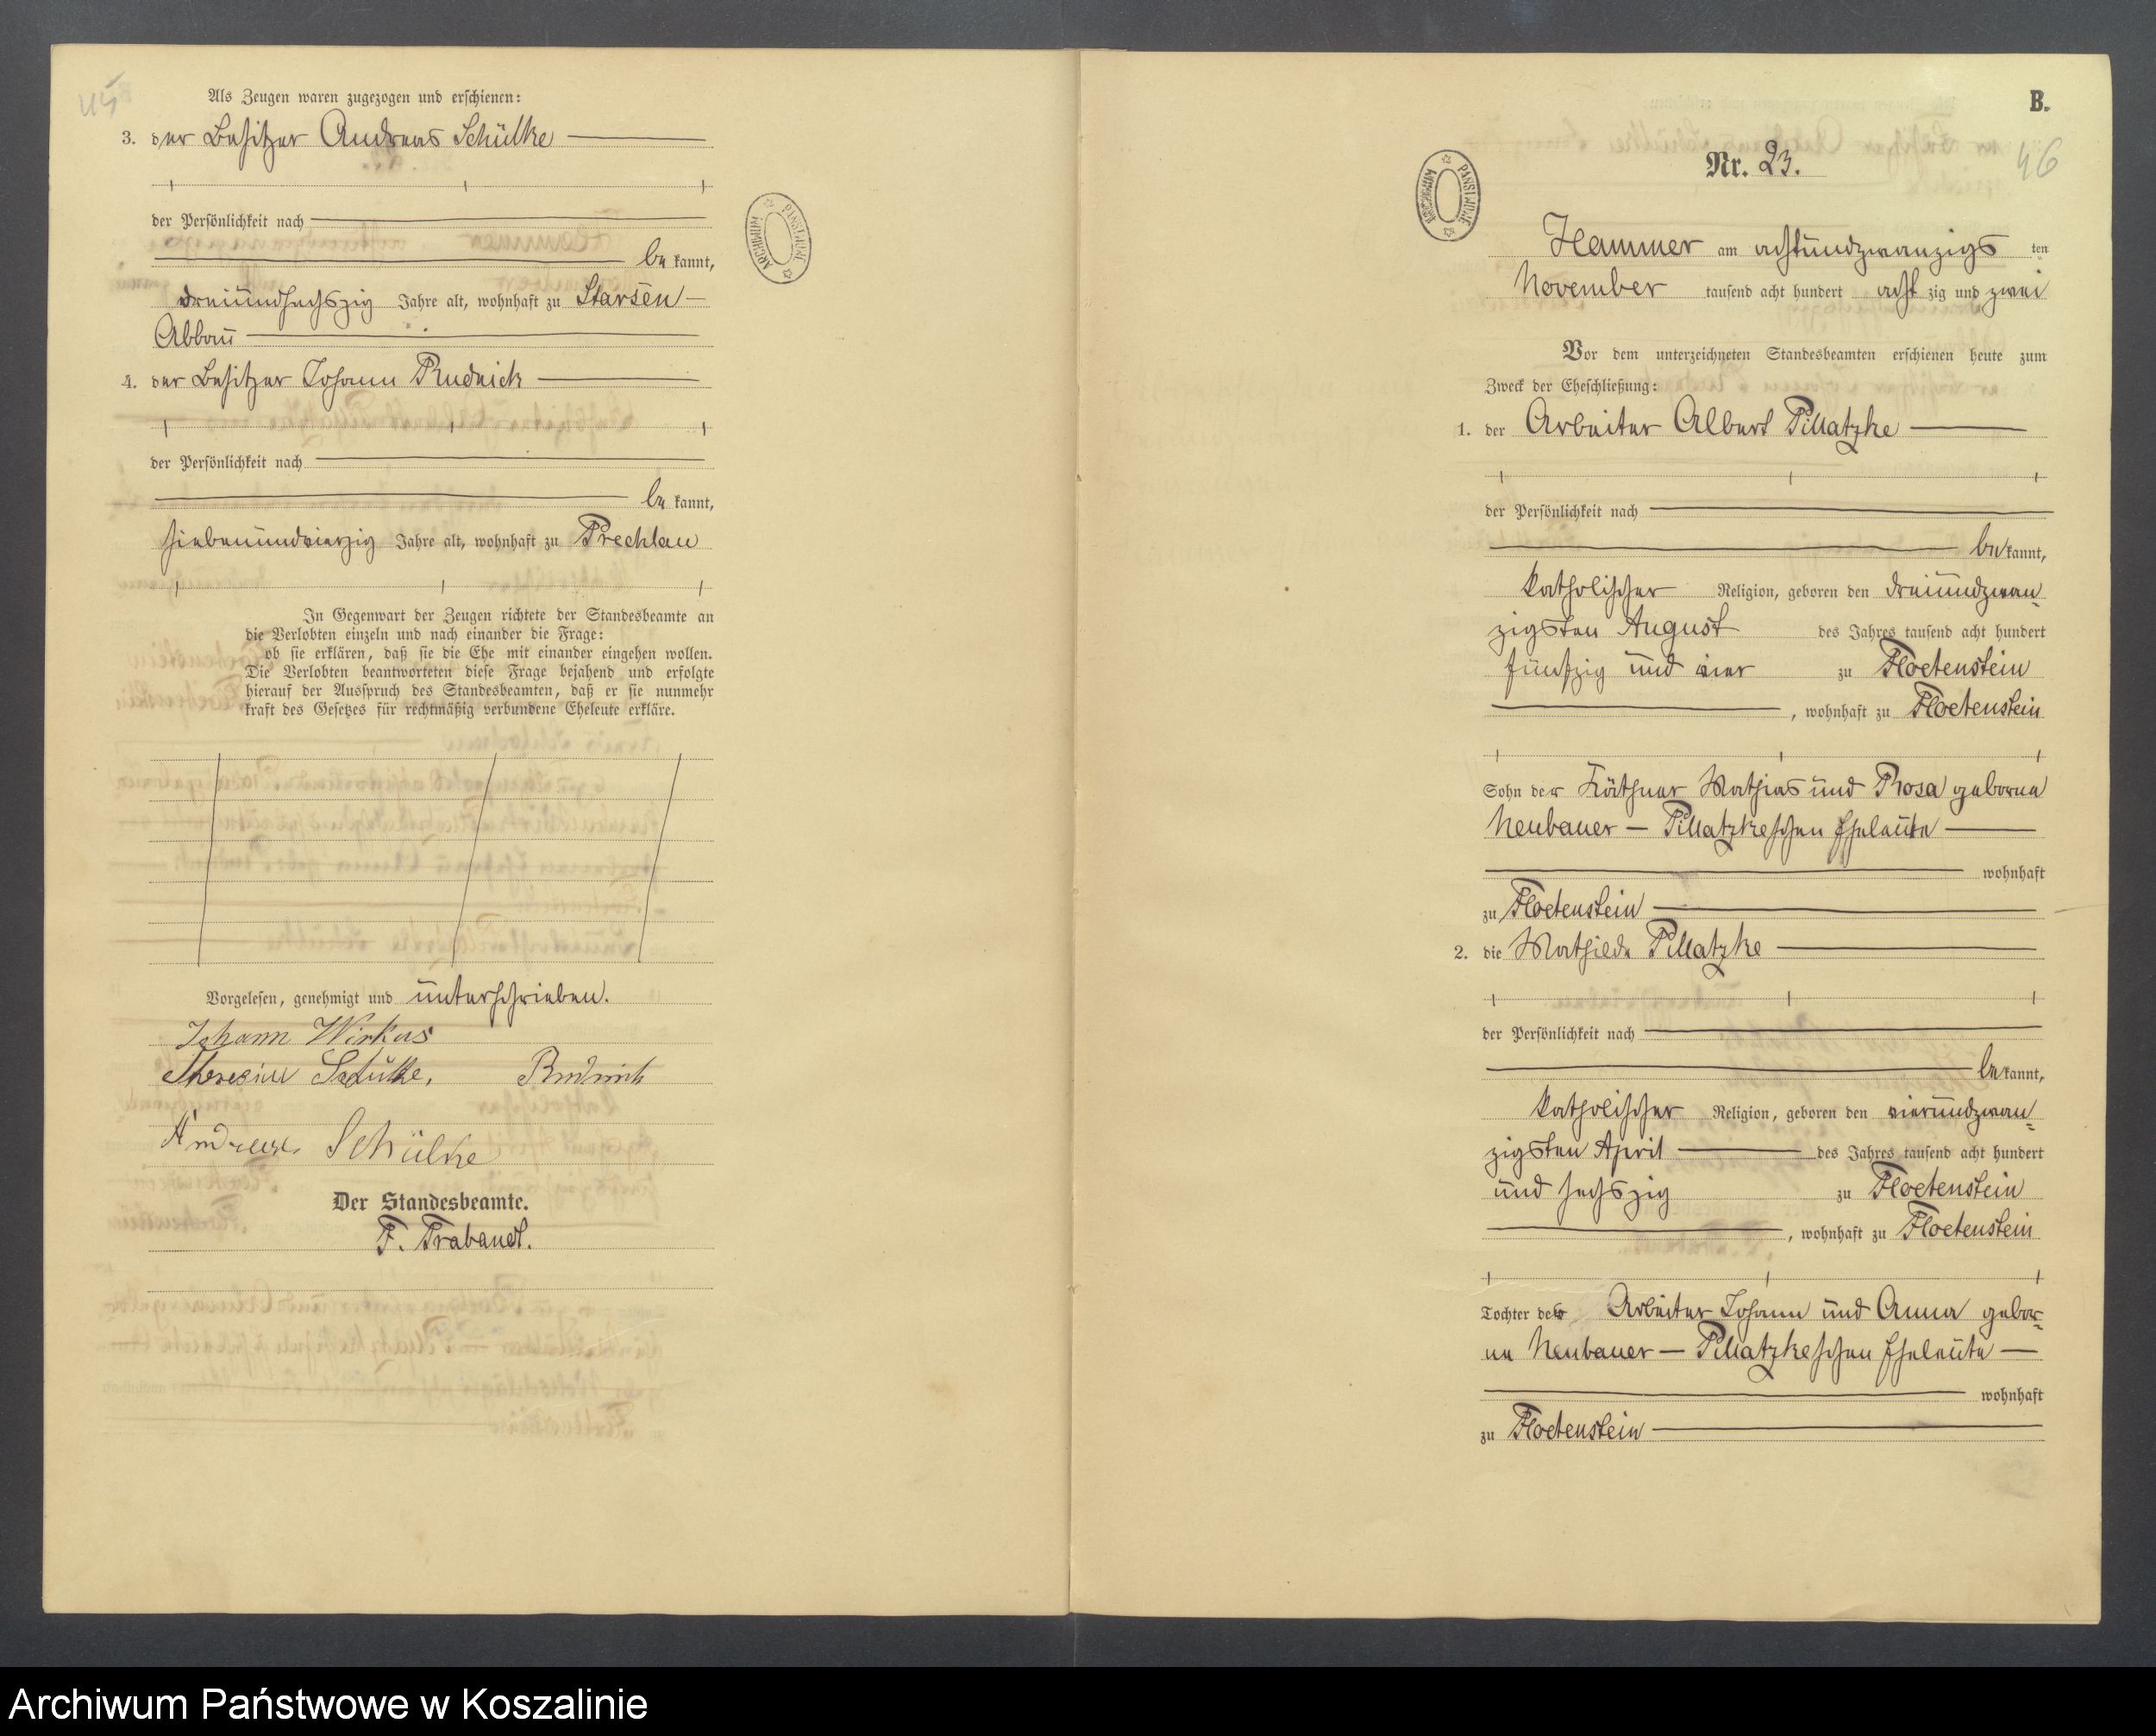 45
Als Zeugen waren zugezogen und erschienen:
3. der Besitzer Andreas Schülke
der Persönlichkeit nach
be kannt,
dreiundsechszig Jahre alt, wohnhaft zu Starsen
Abbau
4. der Besitzer Johann Rudnick
der Persönlichkeit nach
be kannt,
siebenundvierzig Jahre alt, wohnhaft zu Prechlau
In Gegenwart der Zeugen richtete der Standesbeamte an
die Verlobten einzeln und nach einander die Frage:
ob sie erklären, daß sie die Ehe mit einander eingehen wollen.
Die Verlobten beantworteten diese Frage bejahend und erfolgte
hierauf der Ausspruch des Standesbeamten, daß er sie nunmehr
kraft des Gesetzes für rechtmäßig verbundene Eheleute erkläre.
Vorgelesen, genehmigt und unterschrieben.
Johann Wirkus
Theresia Schülke, Rudnick
Andreas Schülke
Der Standesbeamte.
F. Trabandt.
ARCHIWUM PAŃSTWOWE
B.
46
ARCHIWUM PAŃSTWOWE
Nr. 23.
Hammer am achtundzwanzigs ten
November tausend acht hundert acht zig und zwei
Vor dem unterzeichneten Standesbeamten erschienen heute zum
Zweck der Eheschließung:
1. der Arbeiter Albert Pillatzke
der Persönlichkeit nach
be kannt,
katholischer Religion, geboren den dreiundzwan
zigsten August des Jahres tausend acht hundert
fünfzig und vier zu Floetenstein
, wohnhaft zu Floetenstein
Sohn der Käthner Mathias und Rosa geborne
Neubauer — Pillatzkeschen Eheleute
wohnhaft
zu Floetenstein
2. die Mathilde Pillatzke
der Persönlichkeit nach
be kannt,
katholischer Religion, geboren den vierundzwan
zigsten April des Jahres tausend acht hundert
und sechszig zu Floetenstein
, wohnhaft zu Floetenstein
Tochter der Arbeiter Johann und Anna gebor=
ne Neubauer — Pillatzkeschen Eheleute —
wohnhaft
zu Floetenstein
Archiwum Państwowe w Koszalinie